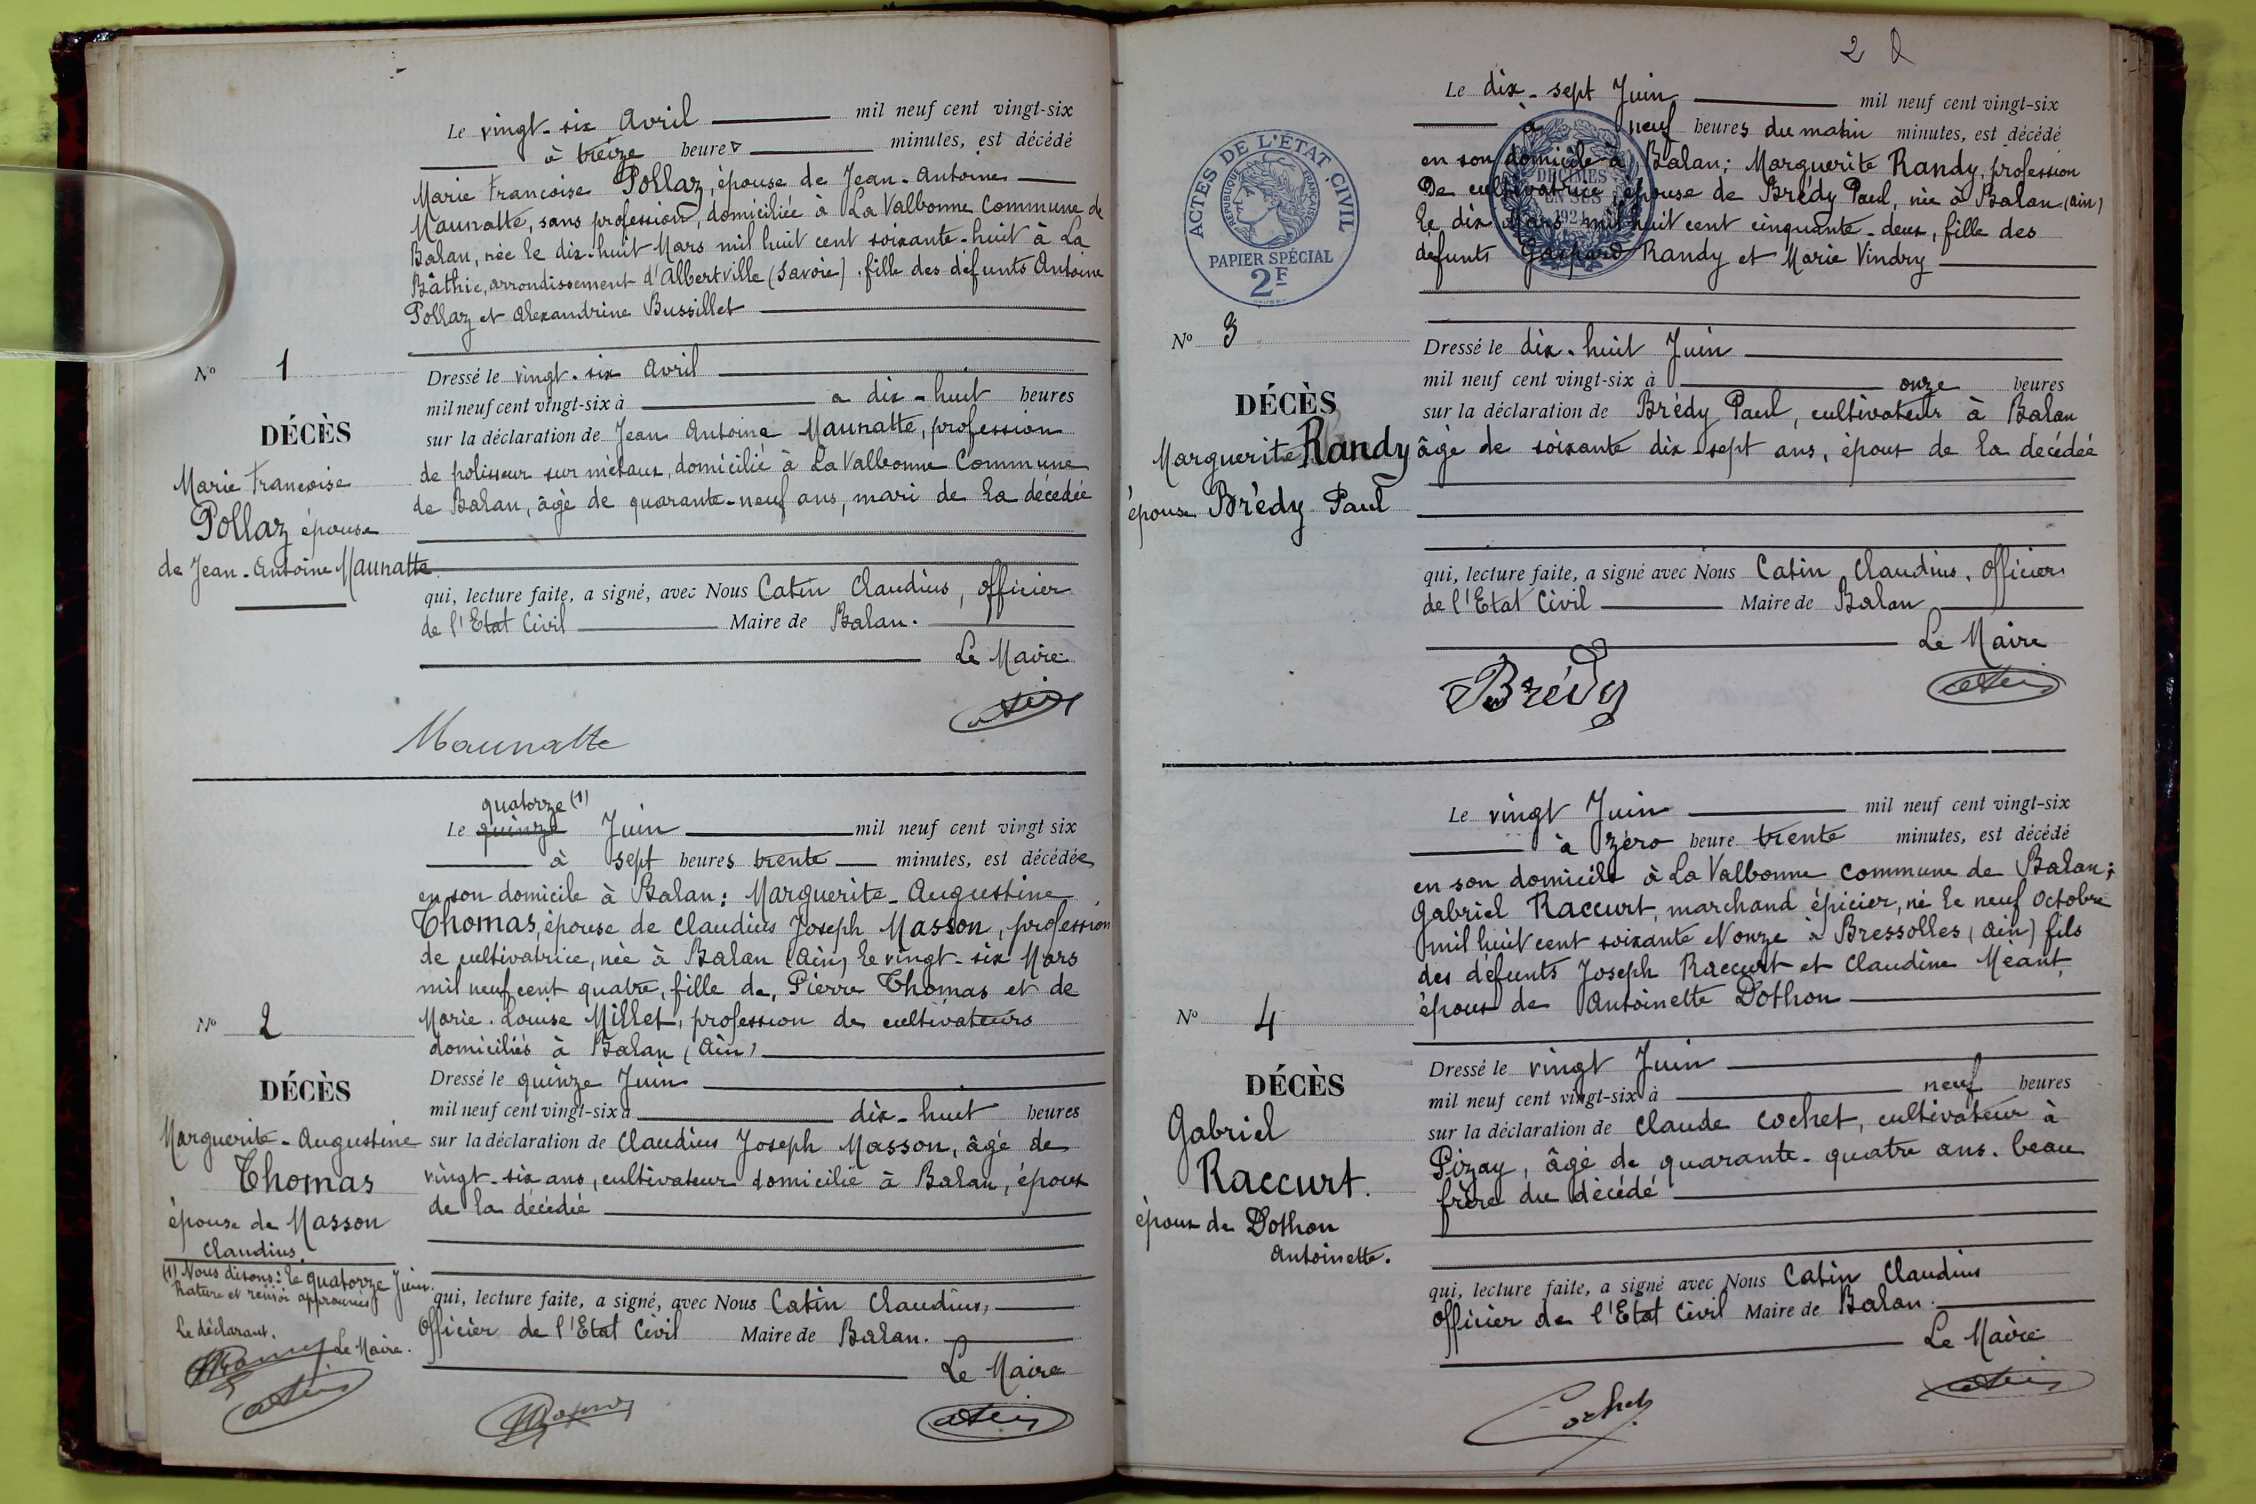 Le vingt-six Avril mil neuf cent vingt-six
à treize heures minutes, est décédé
Marie Francoise Pollaz, épouse de Jean-Antoine
Maunatte, sans profession, domiciliée à La Valbonne Commune de
Balan, née le dix-huit Mars mil huit cent soixante-huit à La
Bâthie, arrondissement d'Albertville (Savoie). fille des défunts Antoine
Pollaz et Alexandrine Bussillet
No 1
DÉCÈS
Marie Francoise
Pollaz épouse
de Jean-Antoine Maunatte
Dressé le vingt-six Avril
mil neuf cent vingt-six à a dix-huit heures
sur la déclaration de Jean Antoine Maunatte, profession
de polisseur sur métaux, domicilié à La Valbonne Commune
de Balan, âgé de quarante-neuf ans, mari de la décédée
qui, lecture faite, a signé, avec Nous Catin Claudius, Officier
de l'Etat Civil Maire de Balan.
Le Maire
Catin
Maunatte
quatorze (1)
Le quinze Juin mil neuf cent vingt six
à sept heures trente minutes, est décédée
en son domicile à Balan: Marguerite-Augustine
Thomas, épouse de Claudius Joseph Masson, profession
de cultivatrice, née à Balan (Ain) le vingt-six Mars
mil neuf cent quatre, fille de, Pierre Thomas et de
Marie-Louise Millet, profession de cultivateurs
domiciliés à Balan (Ain)
No 2
DÉCÈS
Marguerite-Augustine
Thomas
épouse de Masson
Claudius
(1) Nous disons: le quatorze Juin.
Rature et renvoi approuvés
Le déclarant.
Masson Le Maire.
Catin
Dressé le quinze Juin
mil neuf cent vingt-six à dix-huit heures
sur la déclaration de Claudius Joseph Masson, âgé de
vingt-six ans, cultivateur domicilié à Balan, époux
de la décédée
qui, lecture faite, a signé, avec Nous Catin Claudius,
Officier de l'Etat Civil Maire de Balan.
Le Maire
Masson
Catin
2
ACTES DE L'ÉTAT CIVIL
RÉPUBLIQUE FRANÇAISE
PAPIER SPÉCIAL
2F
DÉCIMES
EN SUS
1924
Le dix-sept Juin mil neuf cent vingt-six
à neuf heures du matin minutes, est décédé
en son domicile à Balan; Marguerite Randy, profession
De cultivatrice, épouse de Brédy Paul, née à Balan (Ain)
le dix Mars mil huit cent cinquante-deux, fille des
défunts Gaspard Randy et Marie Vindry
No 3
DÉCÈS
Marguerite Randy
épouse Brédy Paul
Dressé le dix-huit Juin
mil neuf cent vingt-six à onze heures
sur la déclaration de Brédy Paul, cultivateur à Balan
âgé de soixante dix-sept ans, époux de la décédée
qui, lecture faite, a signé avec Nous Catin Claudius, Officier
de l'Etat Civil Maire de Balan
Le Maire
Brédy
Catin
Le vingt Juin mil neuf cent vingt-six
à zéro heure trente minutes, est décédé
en son domicile à La Valbonne Commune de Balan;
Gabriel Raccurt, marchand épicier, né le neuf Octobre
mil huit cent soixante et onze à Bressolles (Ain) fils
des défunts Joseph Raccurt et Claudine Méant,
époux de Antoinette Dothon
No 4
DÉCÈS
Gabriel
Raccurt.
époux de Dothon
Antoinette.
Dressé le vingt Juin
mil neuf cent vingt-six à neuf heures
sur la déclaration de Claude Cochet, cultivateur à
Pizay, âgé de quarante-quatre ans. beau
frère du décédé
qui, lecture faite, a signé avec Nous Catin Claudius
Officier de l'Etat Civil Maire de Balan.
Le Maire
Cochet
Catin